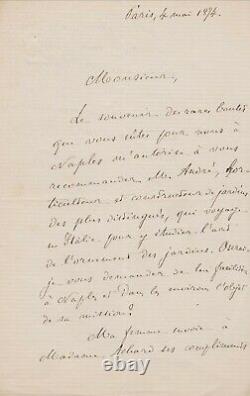 Paris, 4 mai 1874.
Monsieur,
Le souvenir des rares bontés
que vous eûtes pour nous à
Naples m'autorise à vous
recommander M. André, hor-
ticulteur et constructeur de jardins
des plus distingués, qui voyage
en Italie pour y étudier l'art
de l'ornement des jardins. Oserai-
je vous demander de lui faciliter
à Naples et dans les environs l'objet
de sa mission?
Ma femme envoie à
Madame Achard ses compliments
© ebay.com